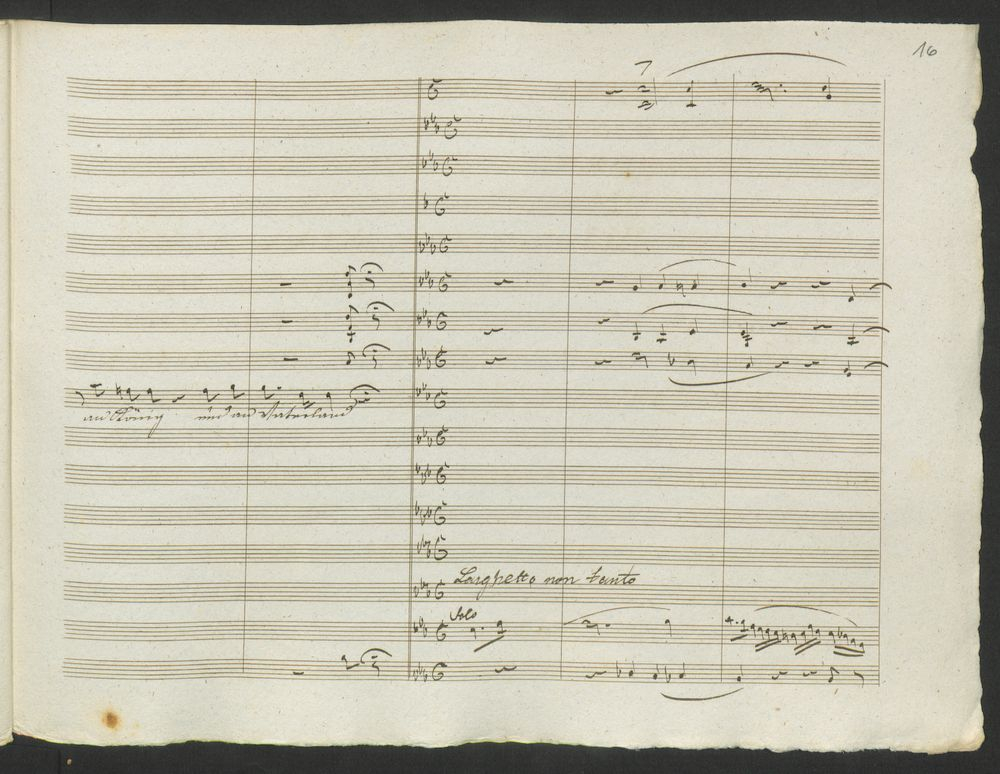 16
an König und an Vaterland
Larghetto non tanto
Solo